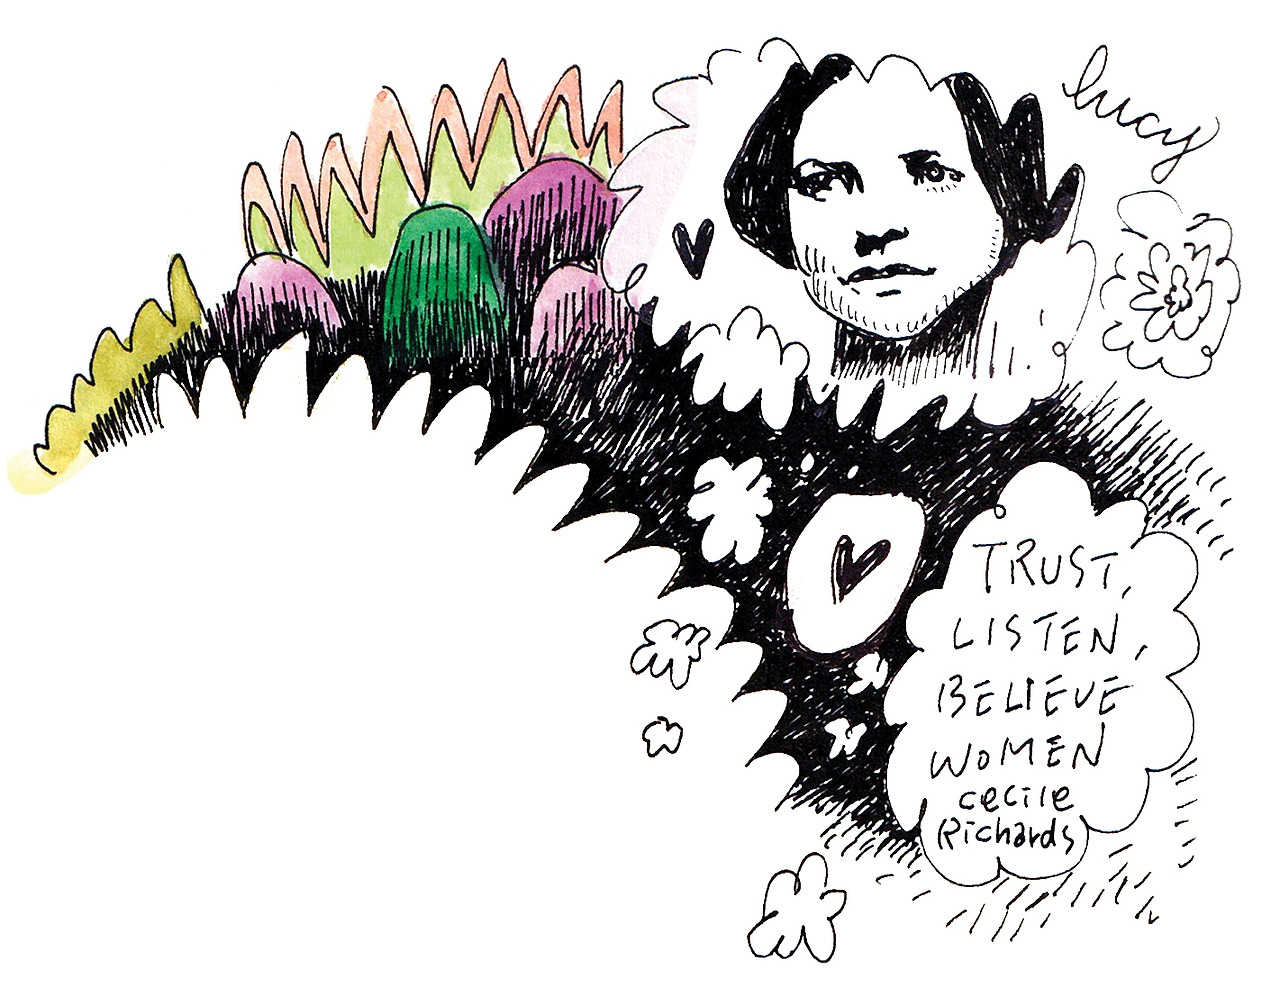 lucy
TRUST,
LISTEN,
BELIEVE
WOMEN
cecile
Richards